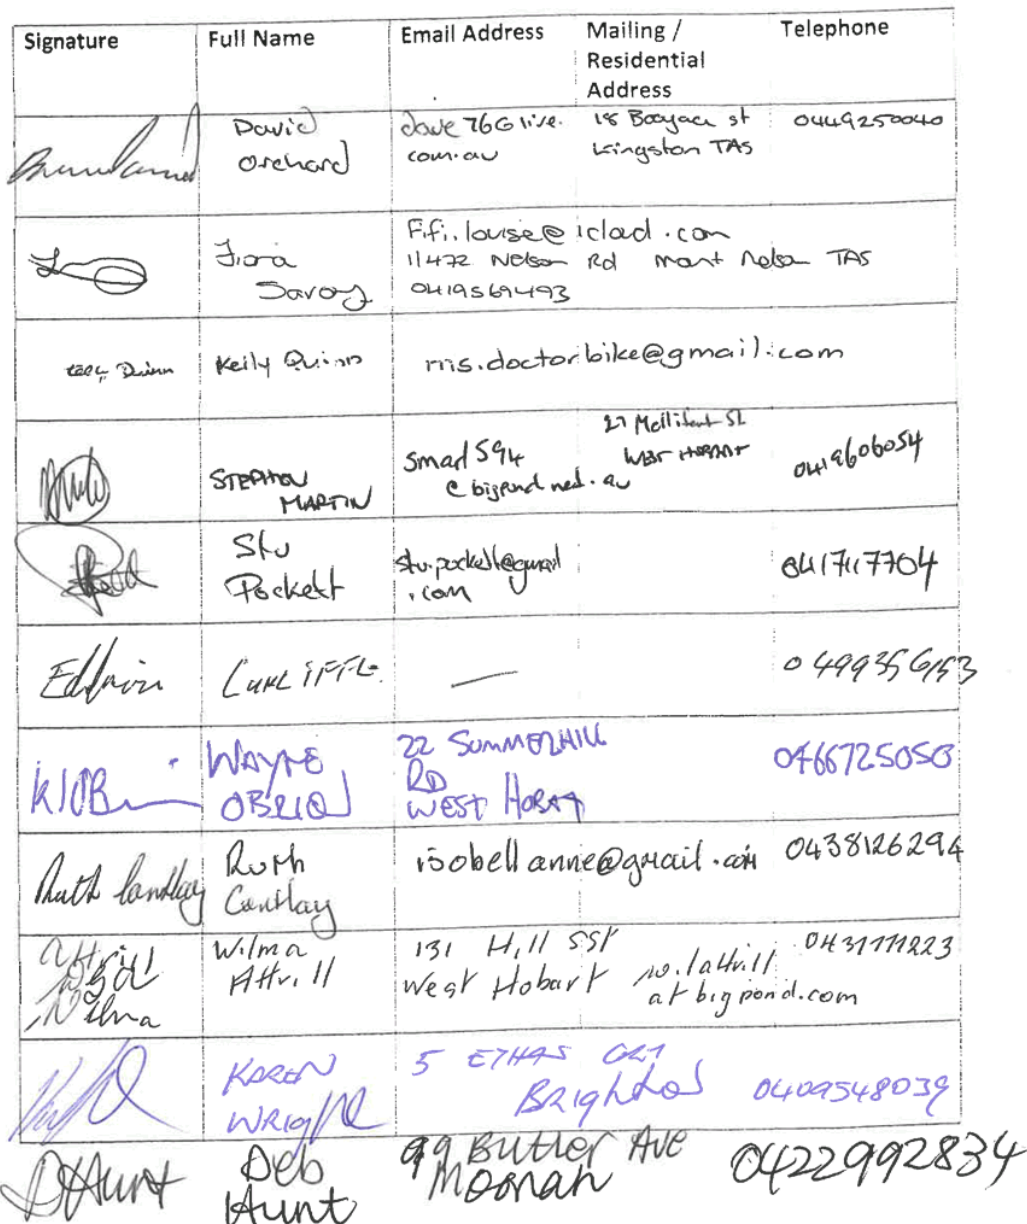 Signature Full Name Email Address Mailing / Residential Address Telephone
David Orchard dave 76@live.com.au 18 Kingston TAS 0449250040
Fiona Savoy Fifi.louise@iclad.com
11472 Nelson Rd Mant Nelson TAS
0419569493
Quinn Keily Quinn ms.doctorbike@gmail.com
STEPHEN MARTIN 27 St WEST HOBART 0419606054
Stu Pockett stu.pockett@gmail.com 0417117704
Edwin CUNLIFFE — 0499356153
WAYNE OBRIEN 22 SUMMERHILL RD WEST HOBART 0466725050
Ruth Canthay Ruth Canthay isobellanne@gmail.com 0438126294
Attrill Wilma Wilma Attrill 131 Hill SSt West Hobart w.lattrill at bigpond.com
KAREN WRIGHT 5 Brighton 0409548039
DHunt Deb Hunt 99 Butler Ave Moonah 0422992834